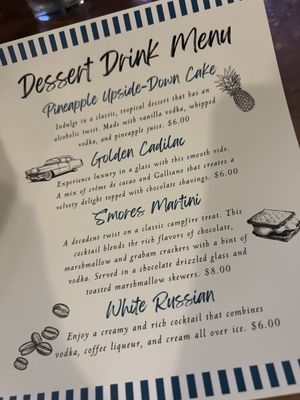 Dessert Drink Menu
Pineapple Upside-Down Cake
Indulge in a classic, tropical dessert that has an
alcoholic twist. Made with vanilla vodka, whipped
vodka, and pineapple juice. $6.00
Golden Cadilac
Experience luxury in a glass with this smooth ride.
A mix of créme de cacao and Galliano that creates a
velvety delight topped with chocolate shavings. $6.00
S'mores Martini
A decadent twist on a classic campfire treat. This
cocktail blends the rich flavors of chocolate,
marshmallow and graham crackers with a hint of
vodka. Served in a chocolate drizzled glass and
toasted marshmallow skewers. $8.00
White Russian
Enjoy a creamy and rich cocktail that combines
vodka, coffee liqueur, and cream all over ice. $6.00